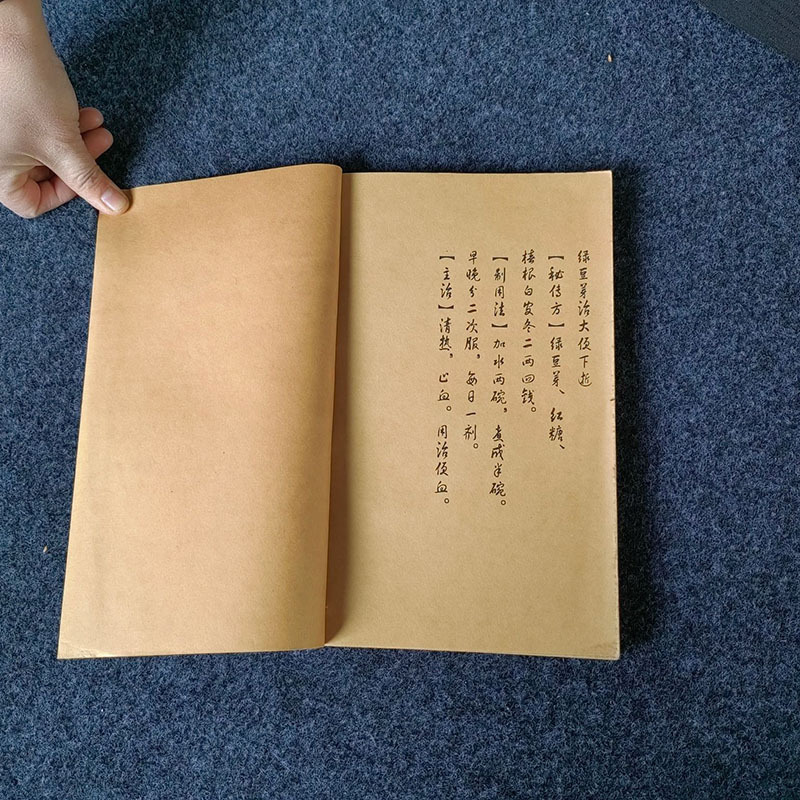 绿豆芽治大便下血
【秘传方】绿豆芽、红糖、
椿根白皮各二两四钱。
【制用法】加水两碗,煮成半碗。
早晚分二次服,每日一剂。
【主治】清热,止血。用治便血。